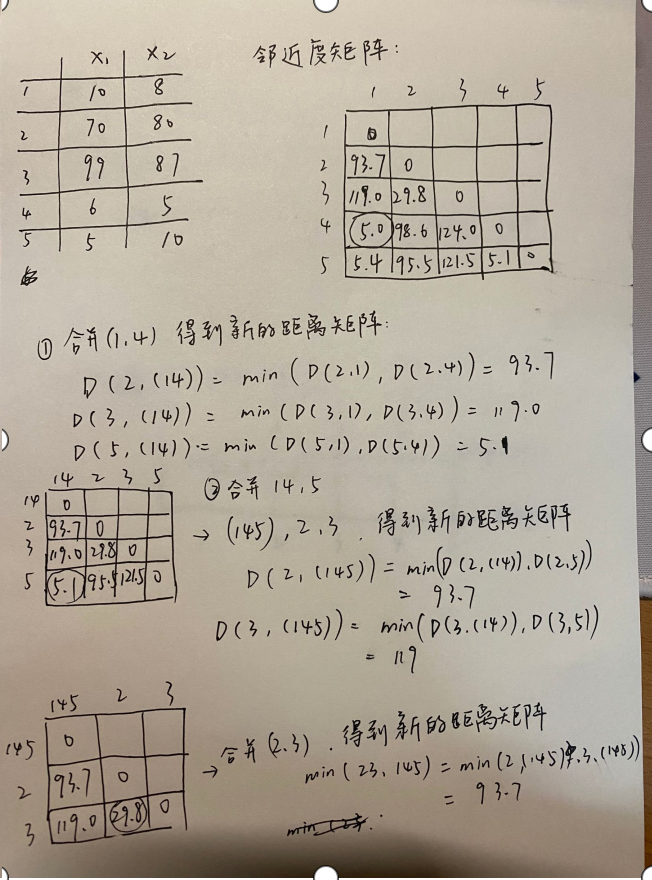 x₁ x₂
1 10 8
2 70 80
3 99 87
4 6 5
5 5 10
邻近度矩阵:
1 2 3 4 5
1 0
2 93.7 0
3 119.0 29.8 0
4 5.0 98.6 124.0 0
5 5.4 95.5 121.5 5.1 0
① 合并(1,4) 得到新的距离矩阵:
D(2,(14)) = min(D(2,1), D(2.4)) = 93.7
D(3,(14)) = min(D(3,1), D(3.4)) = 119.0
D(5,(14)) = min(D(5,1), D(5.4)) = 5.1
14 2 3 5
14 0
2 93.7 0
3 119.0 29.8 0
5 5.1 95.5 121.5 0
② 合并 14,5
→ (145), 2.3. 得到新的距离矩阵
D(2,(145)) = min(D(2,(14)), D(2.5))
= 93.7
D(3,(145)) = min(D(3.(14)), D(3,5))
= 119
145 2 3
145 0
2 93.7 0
3 119.0 29.8 0
→ 合并(2.3). 得到新的距离矩阵
min(23,145) = min(2,(145), 3.(145))
= 93.7